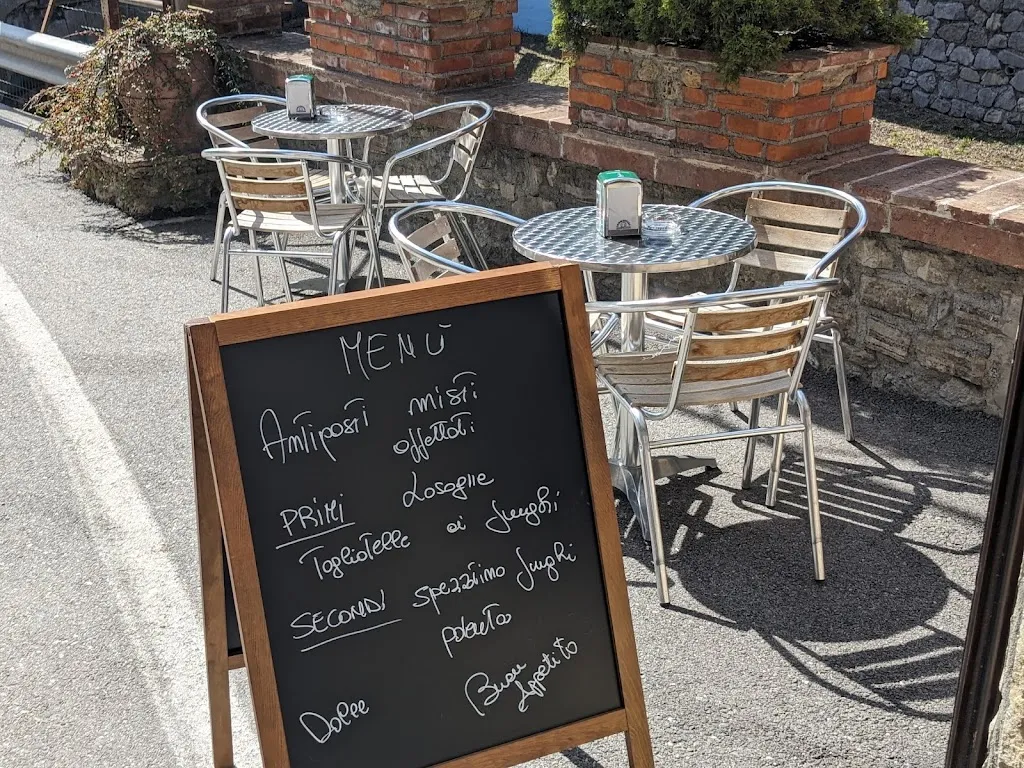 MENÙ
Antipasti misti
affettati
PRIMI Lasagne
Tagliatelle ai funghi
SECONDI spezzatino funghi
polenta
Dolce Buon
Appetito